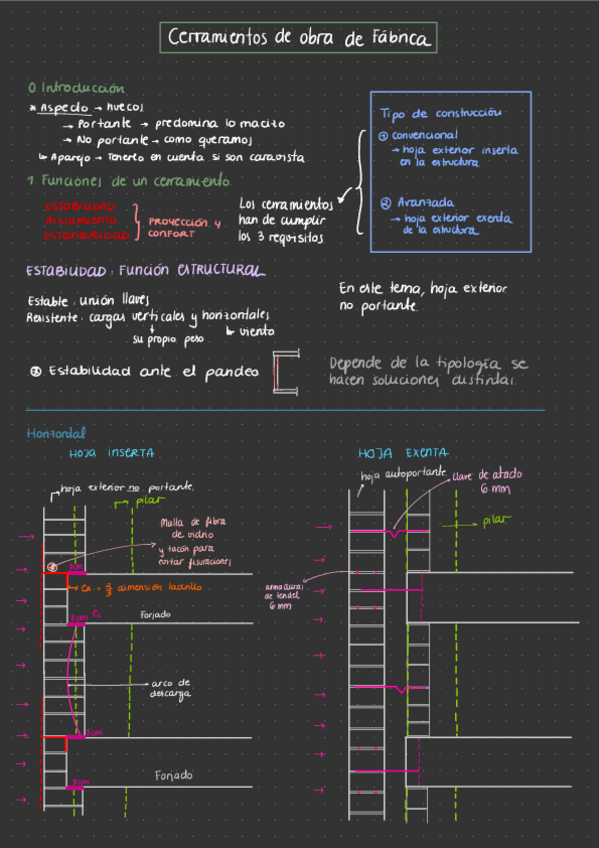 Cerramientos de obra de Fábrica
0. Introducción
* Aspecto → huecos
→ Portante → predomina lo macizo
→ No portante → como queramos
↳ Aparejo → Tenerlo en cuenta si son caravista
Tipo de construcción
① convencional
→ hoja exterior inserta
en la estructura
② Avanzada
→ hoja exterior exenta
de la estructura
1. Funciones de un cerramiento.
ESTABILIDAD
AISLAMIENTO
ESTANQUEIDAD
PROYECCIÓN y
CONFORT
Los cerramientos
han de cumplir
los 3 requisitos
ESTABILIDAD: Función ESTRUCTURAL
Estable: unión llaves
Resistente: cargas verticales y horizontales
su propio peso
↳ viento
En este tema, hoja exterior
no portante.
Estabilidad ante el pandeo
Depende de la tipología se
hacen soluciones distintas.
Horizontal
HOJA INSERTA
hoja exterior no portante.
pilar
Malla de fibra
de vidrio
y tacón para
evitar fisuraciones
3cm
dimensión ladrillo
3cm
Forjado
arco de
descarga
3cm
Forjado
3cm
HOJA EXENTA
hoja autoportante
llave de atado
6 mm
pilar
armaduras
de tendel
6 mm